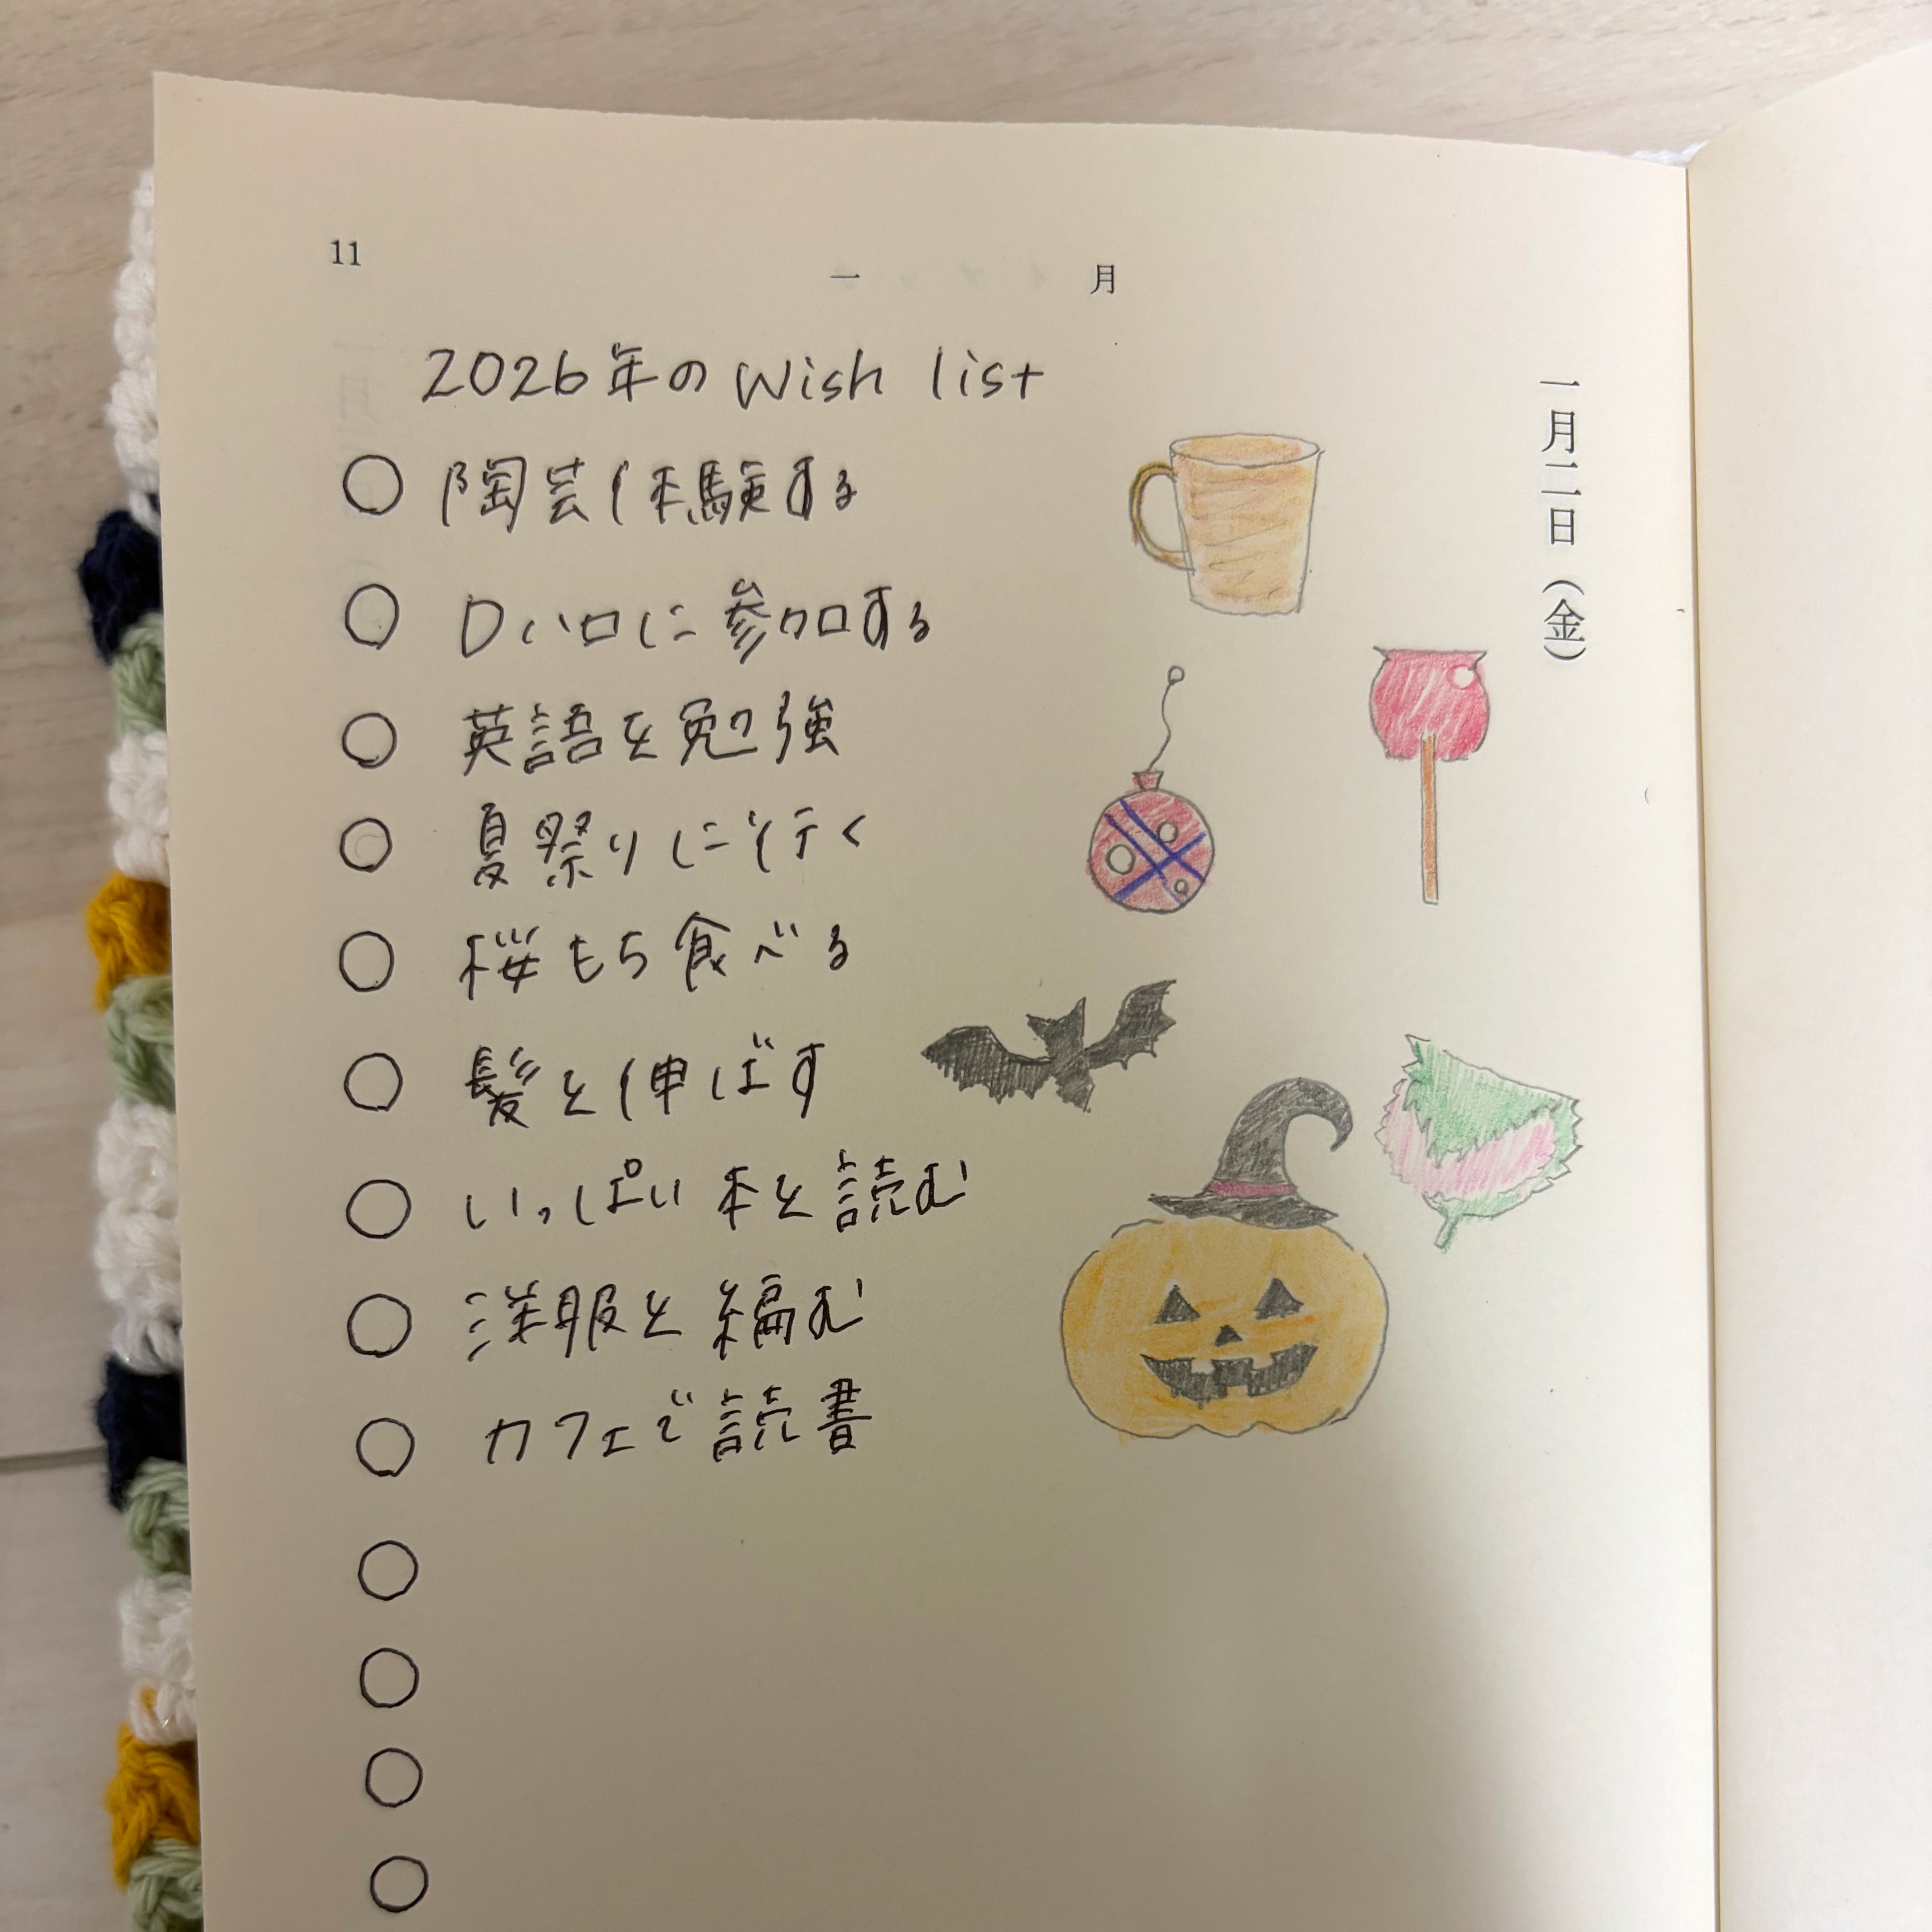 11
一 月
一月二日（金）
2026年のwish list
○ 陶芸体験する
○ Dハロに参加する
○ 英語を勉強
○ 夏祭りに行く
○ 桜もち食べる
○ 髪を伸ばす
○ いっぱい本を読む
○ 洋服を編む
○ カフェで読書
○
○
○
○